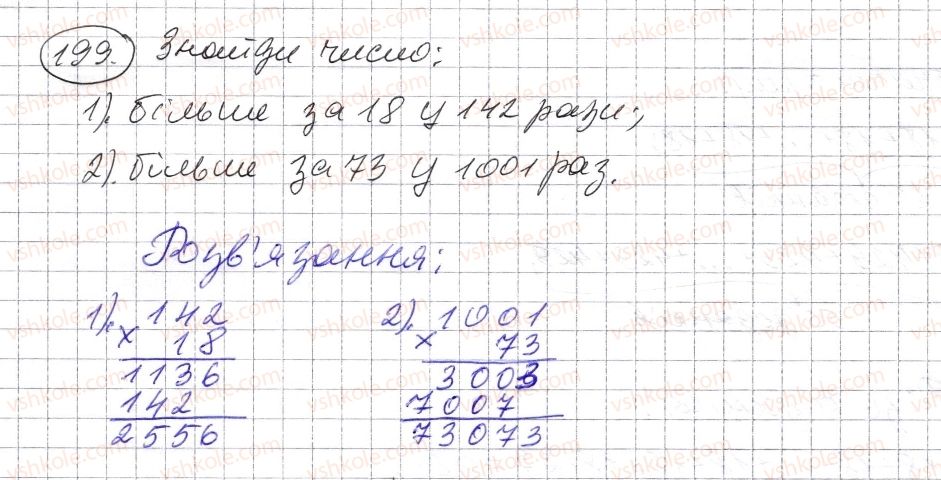 199. Знайди число:
1). більше за 18 у 142 рази;
2). більше за 73 у 1001 раз.
Розв'язання:
1). 142
× 18
1136
142
2556
2). 1001
× 73
3003
7007
73073